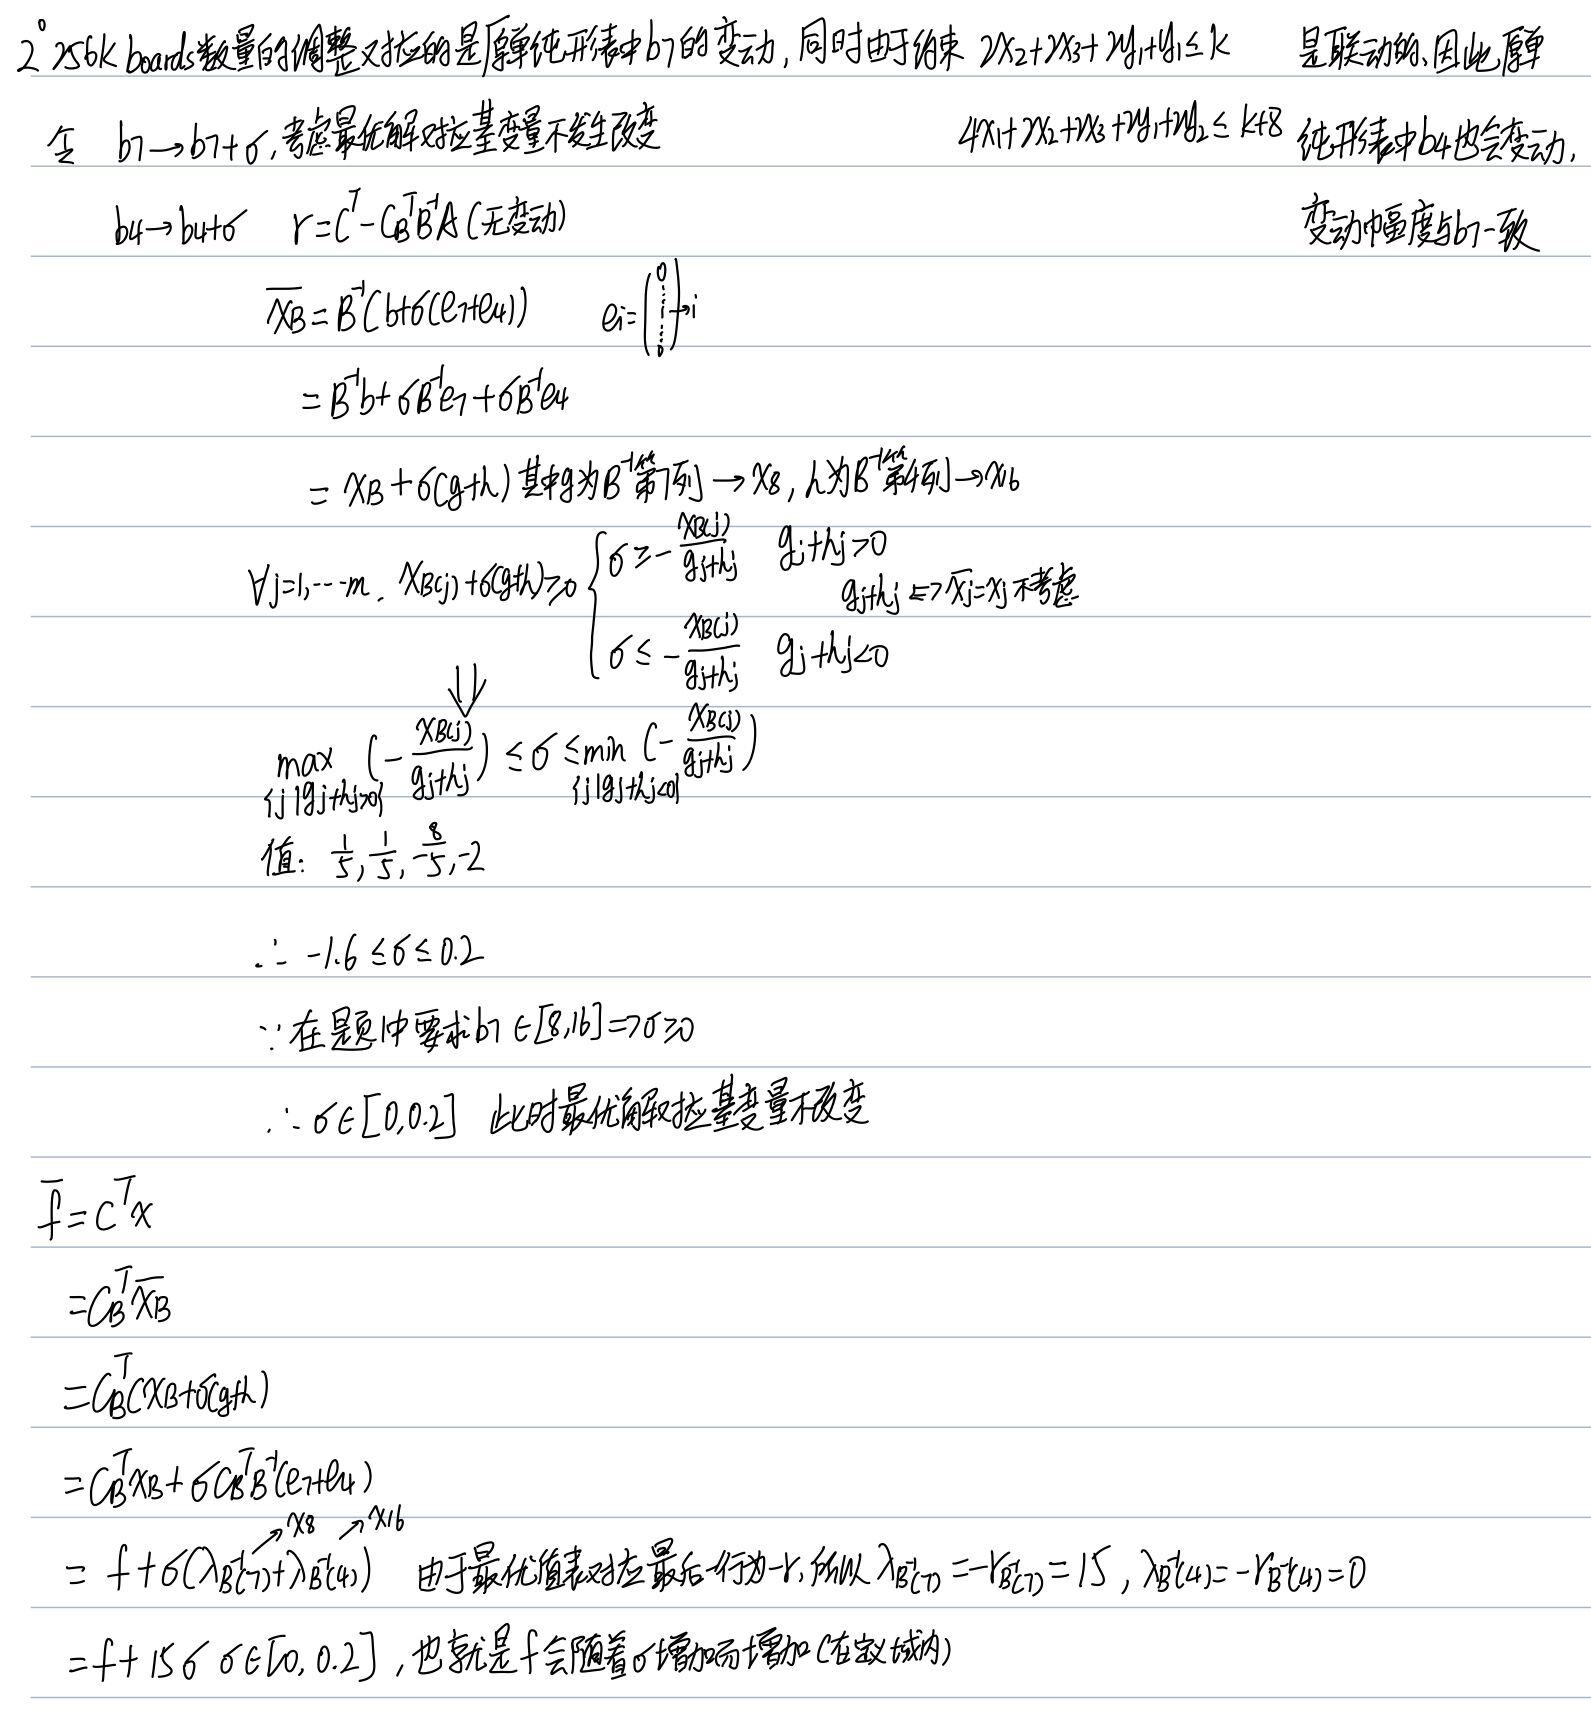 2° 256K boards数量的调整对应的是原单纯形表中b7的变动,同时由于约束 2x2+2x3+2y1+y1≤k 是联动的,因此原单
令 b7→b7+σ,考虑最优解对应基变量不发生改变 4x1+2x2+2x3+2y1+2y2≤k+8 纯形表中b4也会变动,
b4→b4+σ r=C^T-C_B^T B^-1 A(无变动) 变动幅度与b7一致
x̄B=B^-1(b+σ(e7+e4)) ei=(0 ⋮ 1 ⋮ 0)→i
=B^-1 b+σB^-1 e7+σB^-1 e4
=xB+σ(g+h) 其中g为B^-1第7列→x8, h为B^-1第4列→x16
∀j=1,…m. xB(j)+σ(g+h)≥0 { σ≥-xB(j)/(gj+hj) gj+hj>0
gj+hj⇔x̄j=xj不考虑
σ≤-xB(j)/(gj+hj) gj+hj<0
⇓
max{j|gj+hj>0} (-xB(j)/(gj+hj)) ≤σ≤ min{j|gj+hj<0} (-xB(j)/(gj+hj))
值: 1/5, 1/5, -8/5, -2
∴ -1.6≤σ≤0.2
∵在题中要求b7∈[8,16]=>σ≥0
∴σ∈[0,0.2] 此时最优解对应基变量不改变
f̄=C^T x
=C_B^T x̄B
=C_B^T(xB+σ(g+h)
=C_B^T xB+σC_B^T B^-1(e7+e4)
→x8 →x16
=f+σ(λB^-1(7)+λB^-1(4)) 由于最优值表对应最后一行为-r,所以λB^-1(7)=-rB^-1(7)=15, λB^-1(4)=-rB^-1(4)=0
=f+15σ σ∈[0,0.2],也就是f会随着σ增加而增加(在定义域内)